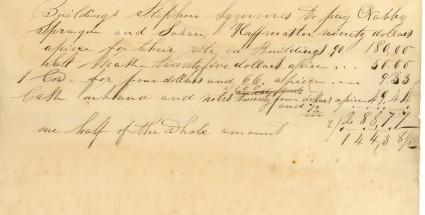 Buildings Stephen Symmes to pay Nabby
Sprague and Susan Hoffmaster ninety dollars
apiece for their in Buildings 90 180,00
twenty five dollars apiece ... 50.00
1 Cow - for four dollars and 66. apiece .... 9 33
Cash on hand and notes twenty four dollars apiece 49,44
and 72
2/288,77
one half of the whole amount 144,38 1/2